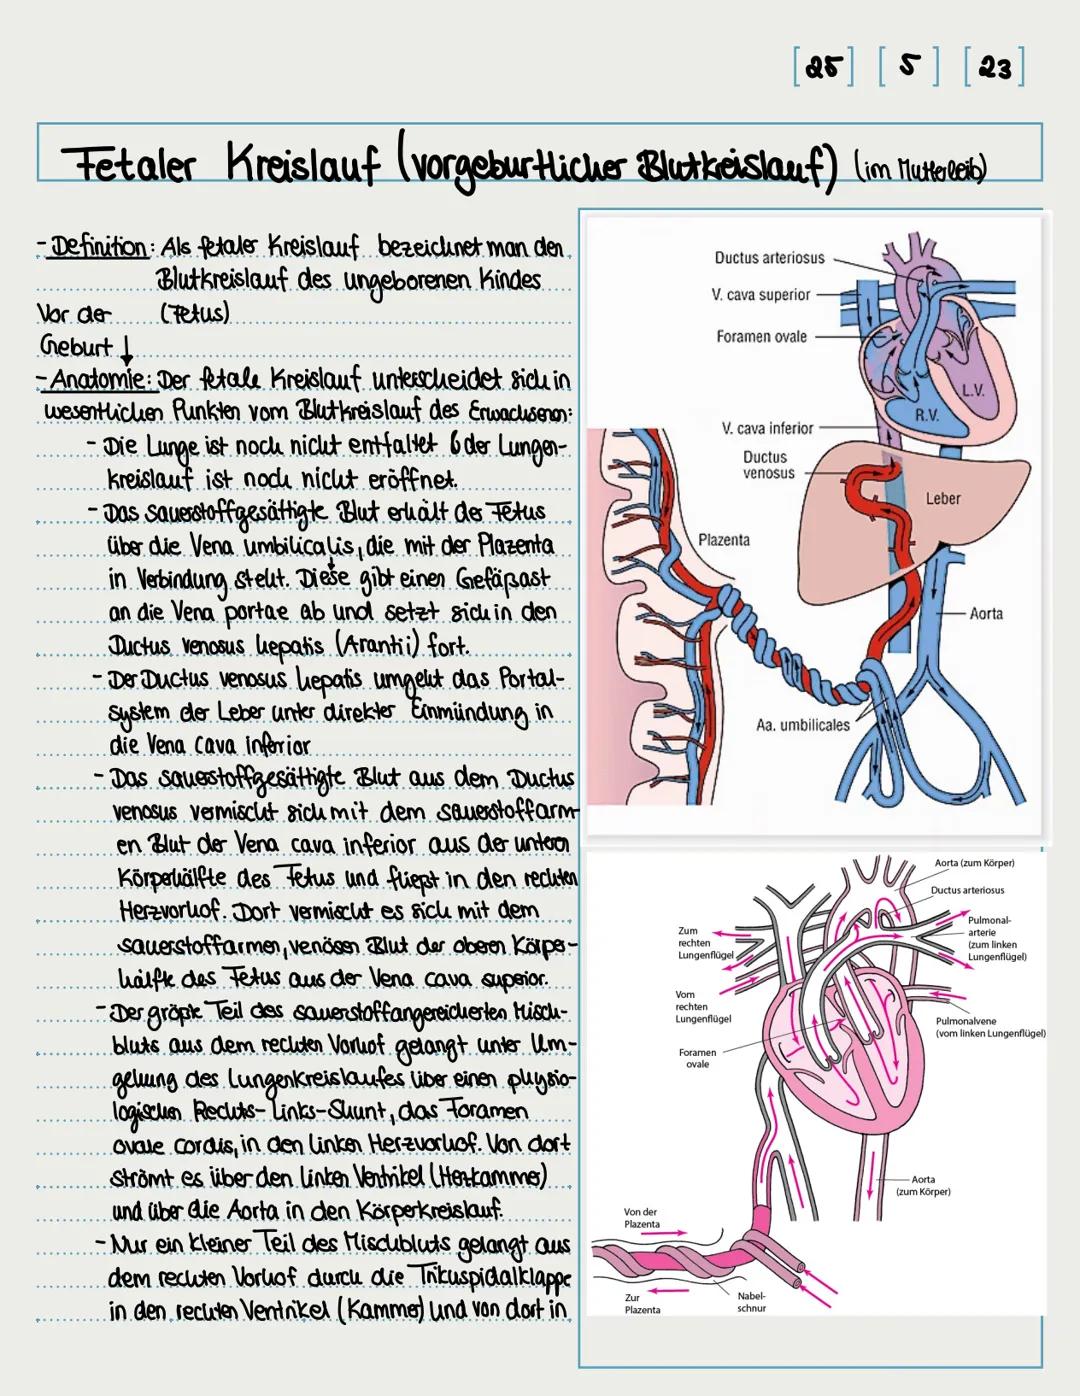 [25] [5] [23]
Fetaler Kreislauf (vorgeburtlicher Blutkreislauf) (im Mutterleib)
- Definition: Als fetaler Kreislauf bezeichnet man den
Blutkreislauf des ungeborenen Kindes
Vor der (Fetus)
Geburt ↓
- Anatomie: Der fetale Kreislauf unterscheidet sich in
wesentlichen Punkten vom Blutkreislauf des Erwachsenen:
- Die Lunge ist noch nicht entfaltet & der Lungen-
kreislauf ist noch nicht eröffnet.
- Das sauerstoffgesättigte Blut erhält der Fetus
über die Vena umbilicalis, die mit der Plazenta
in Verbindung steht. Diese gibt einen Gefäßast
an die Vena portae ab und setzt sich in den
Ductus venosus hepatis (Arantii) fort.
- Der Ductus venosus hepatis umgeht das Portal-
system der Leber unter direkter Einmündung in
die Vena cava inferior
- Das sauerstoffgesättigte Blut aus dem Ductus
venosus vermischt sich mit dem sauerstoffarm-
en Blut der Vena cava inferior aus der unteren
Körperhälfte des Fetus und fließt in den rechten
Herzvorhof. Dort vermischt es sich mit dem
sauerstoffarmen, venösen Blut der oberen Körper-
hälfte des Fetus aus der Vena cava superior.
- Der größte Teil des sauerstoffangereicherten Misch-
bluts aus dem rechten Vorhof gelangt unter Um-
gehung des Lungenkreislaufes über einen physio-
logischen Rechts-Links-Shunt, das Foramen
ovale cordis, in den linken Herzvorhof. Von dort
strömt es über den linken Ventrikel (Herzkammer)
und über die Aorta in den Körperkreislauf.
- Nur ein kleiner Teil des Mischbluts gelangt aus
dem rechten Vorhof durch die Trikuspidalklappe
in den rechten Ventrikel (Kammer) und von dort in
Ductus arteriosus
V. cava superior
Foramen ovale
L.V.
R.V.
V. cava inferior
Ductus
venosus
Leber
Plazenta
Aorta
Aa. umbilicales
Aorta (zum Körper)
Ductus arteriosus
Pulmonal-
arterie
(zum linken
Lungenflügel)
Zum
rechten
Lungenflügel
Vom
rechten
Lungenflügel
Pulmonalvene
(vom linken Lungenflügel)
Foramen
ovale
Aorta
(zum Körper)
Von der
Plazenta
Zur
Plazenta
Nabel-
schnur